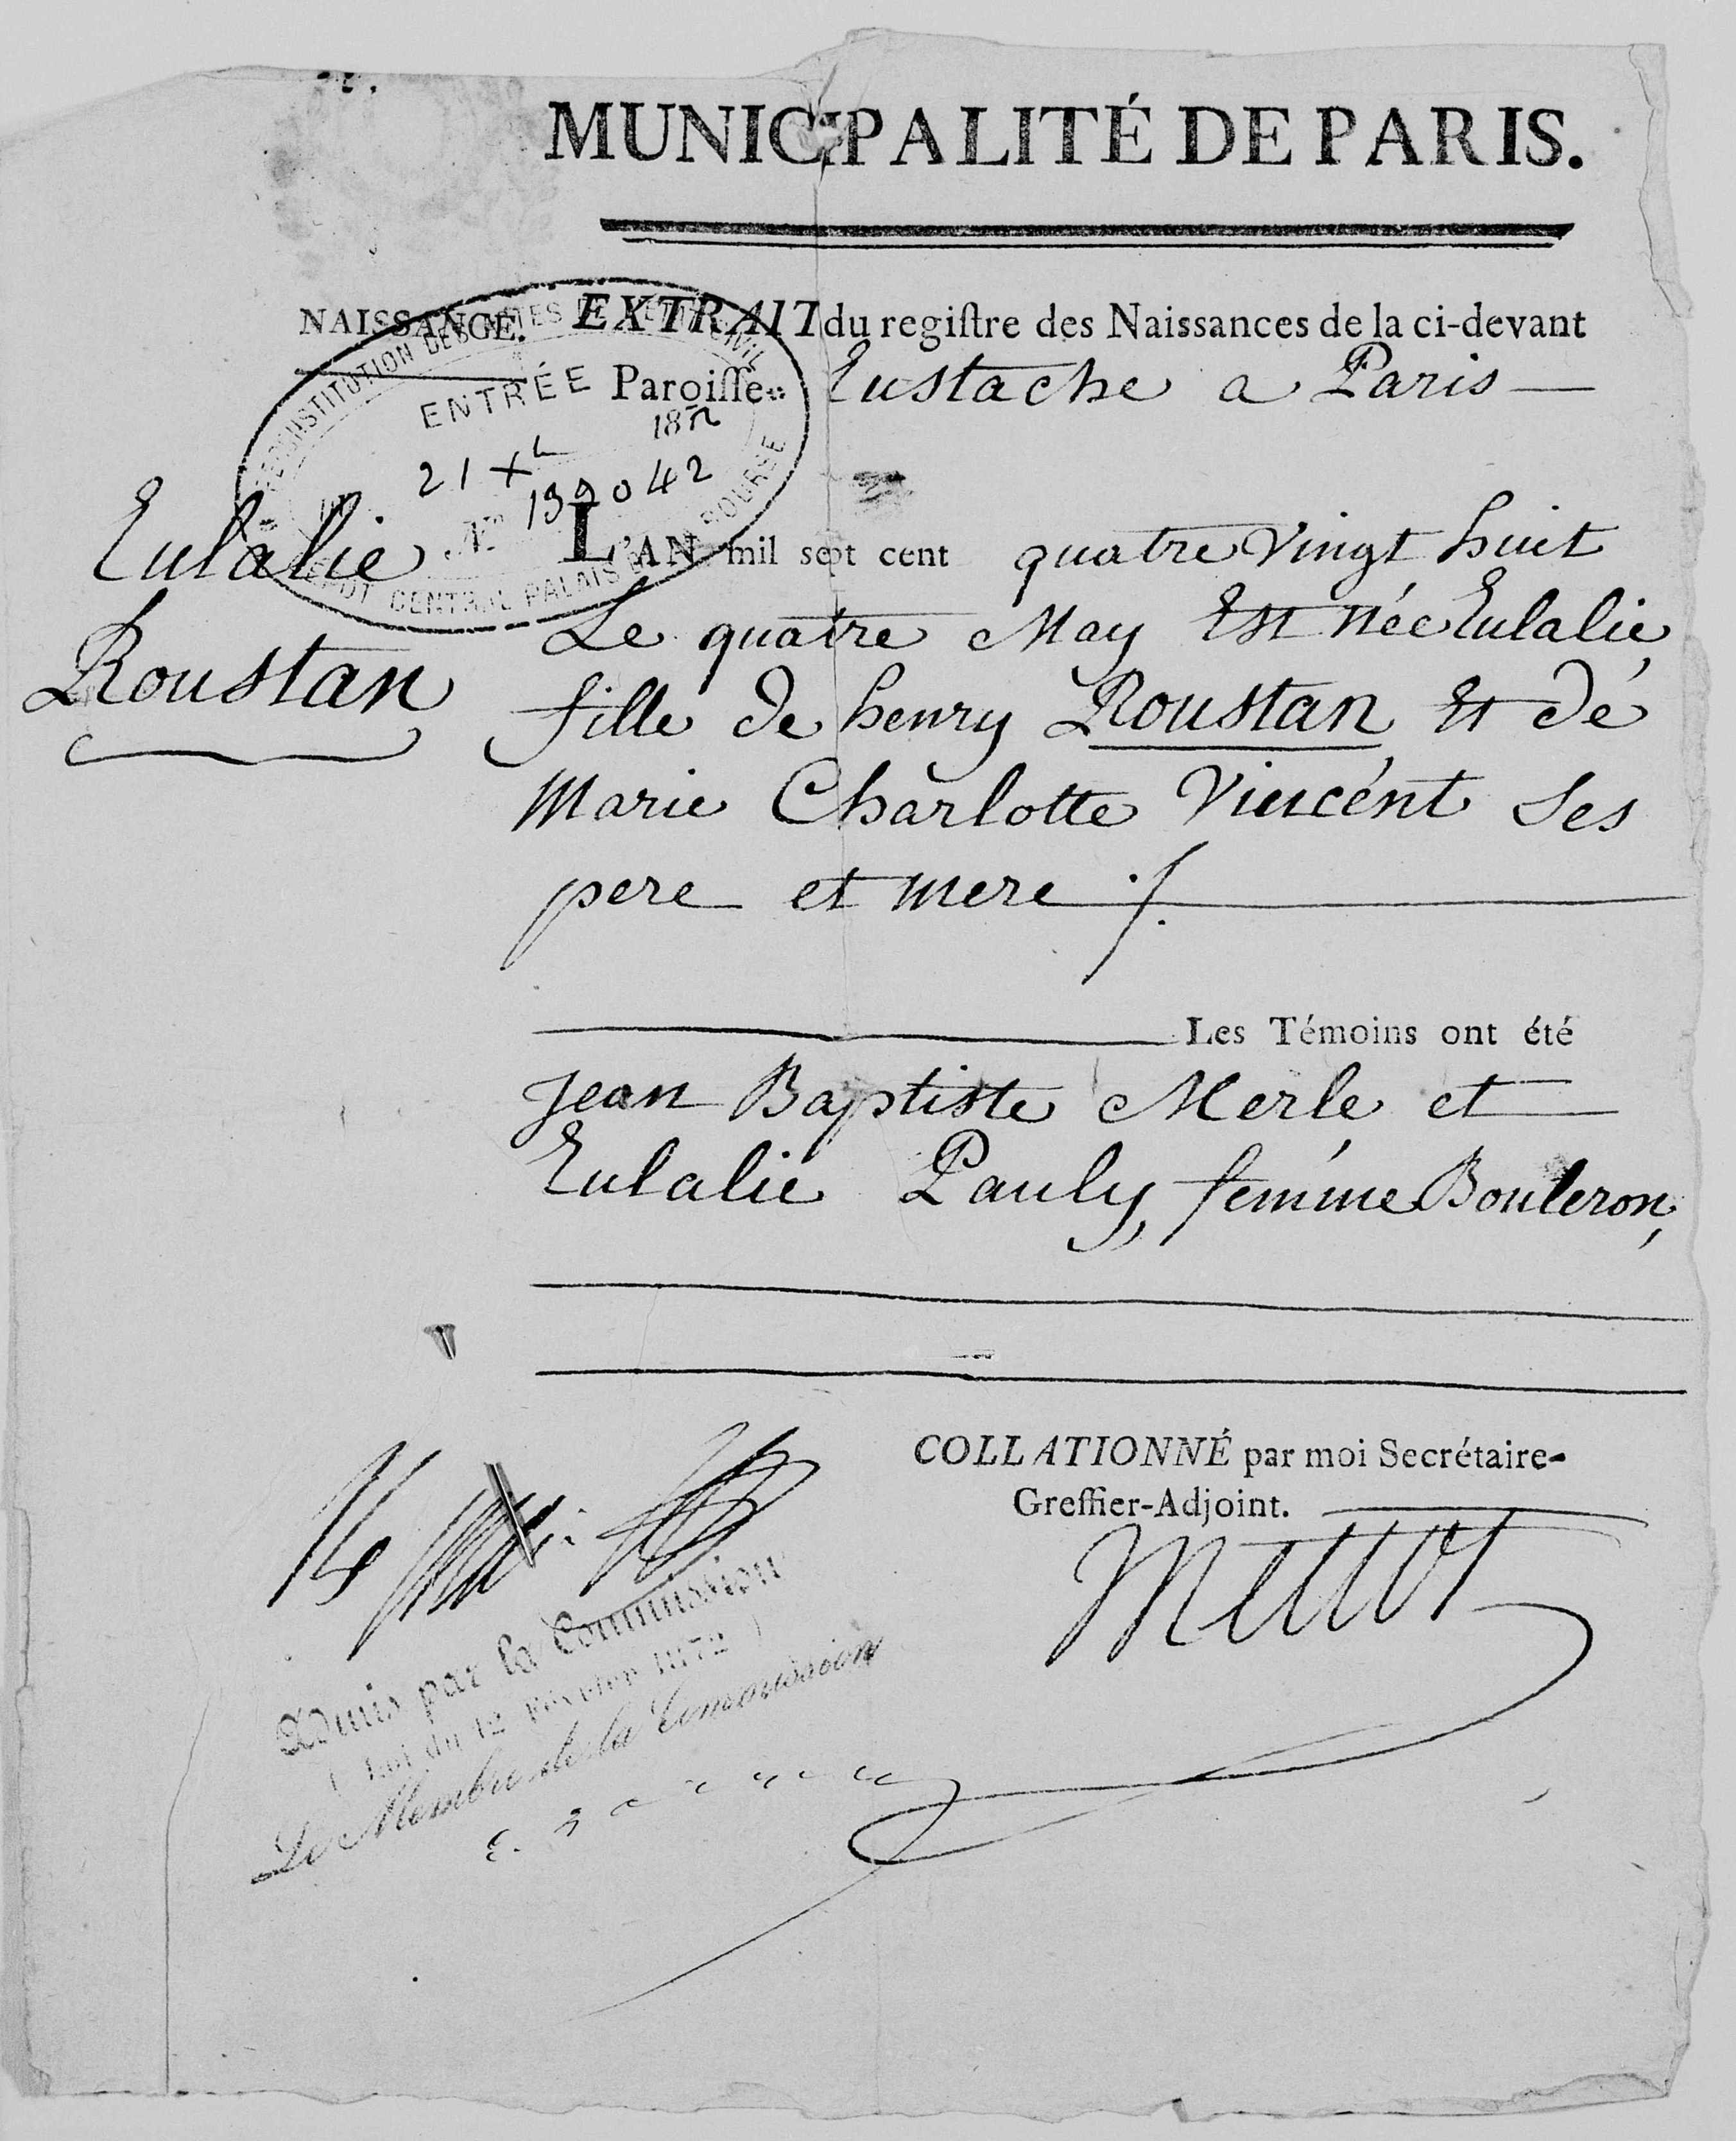 MUNICIPALITÉ DE PARIS.
NAISSANCE.
EXTRAIT du regiſtre des Naissances de la ci-devant
Paroiſſe Eustache a Paris
RECONSTITUTION DES ACTES DE L'ÉTAT CIVIL
ENTRÉE
21 Xbre 1872
N° 139042
DÉPOT CENTRAL PALAIS DE LA BOURSE
Eulalie
Roustan
L'AN mil sept cent quatre Vingt huit
Le quatre May Est née Eulalie
fille de henry Roustan Et de
Marie Charlotte Vincent Ses
pere et mere ./.
Les Témoins ont été
Jean Baptiste Merle et
Eulalie Pauly, femme Bouleron,
COLLATIONNÉ par moi Secrétaire-
Greffier-Adjoint.
Mettot
Admis par la Commission
( Loi du 12 Février 1872 )
Le Membre de la Commission